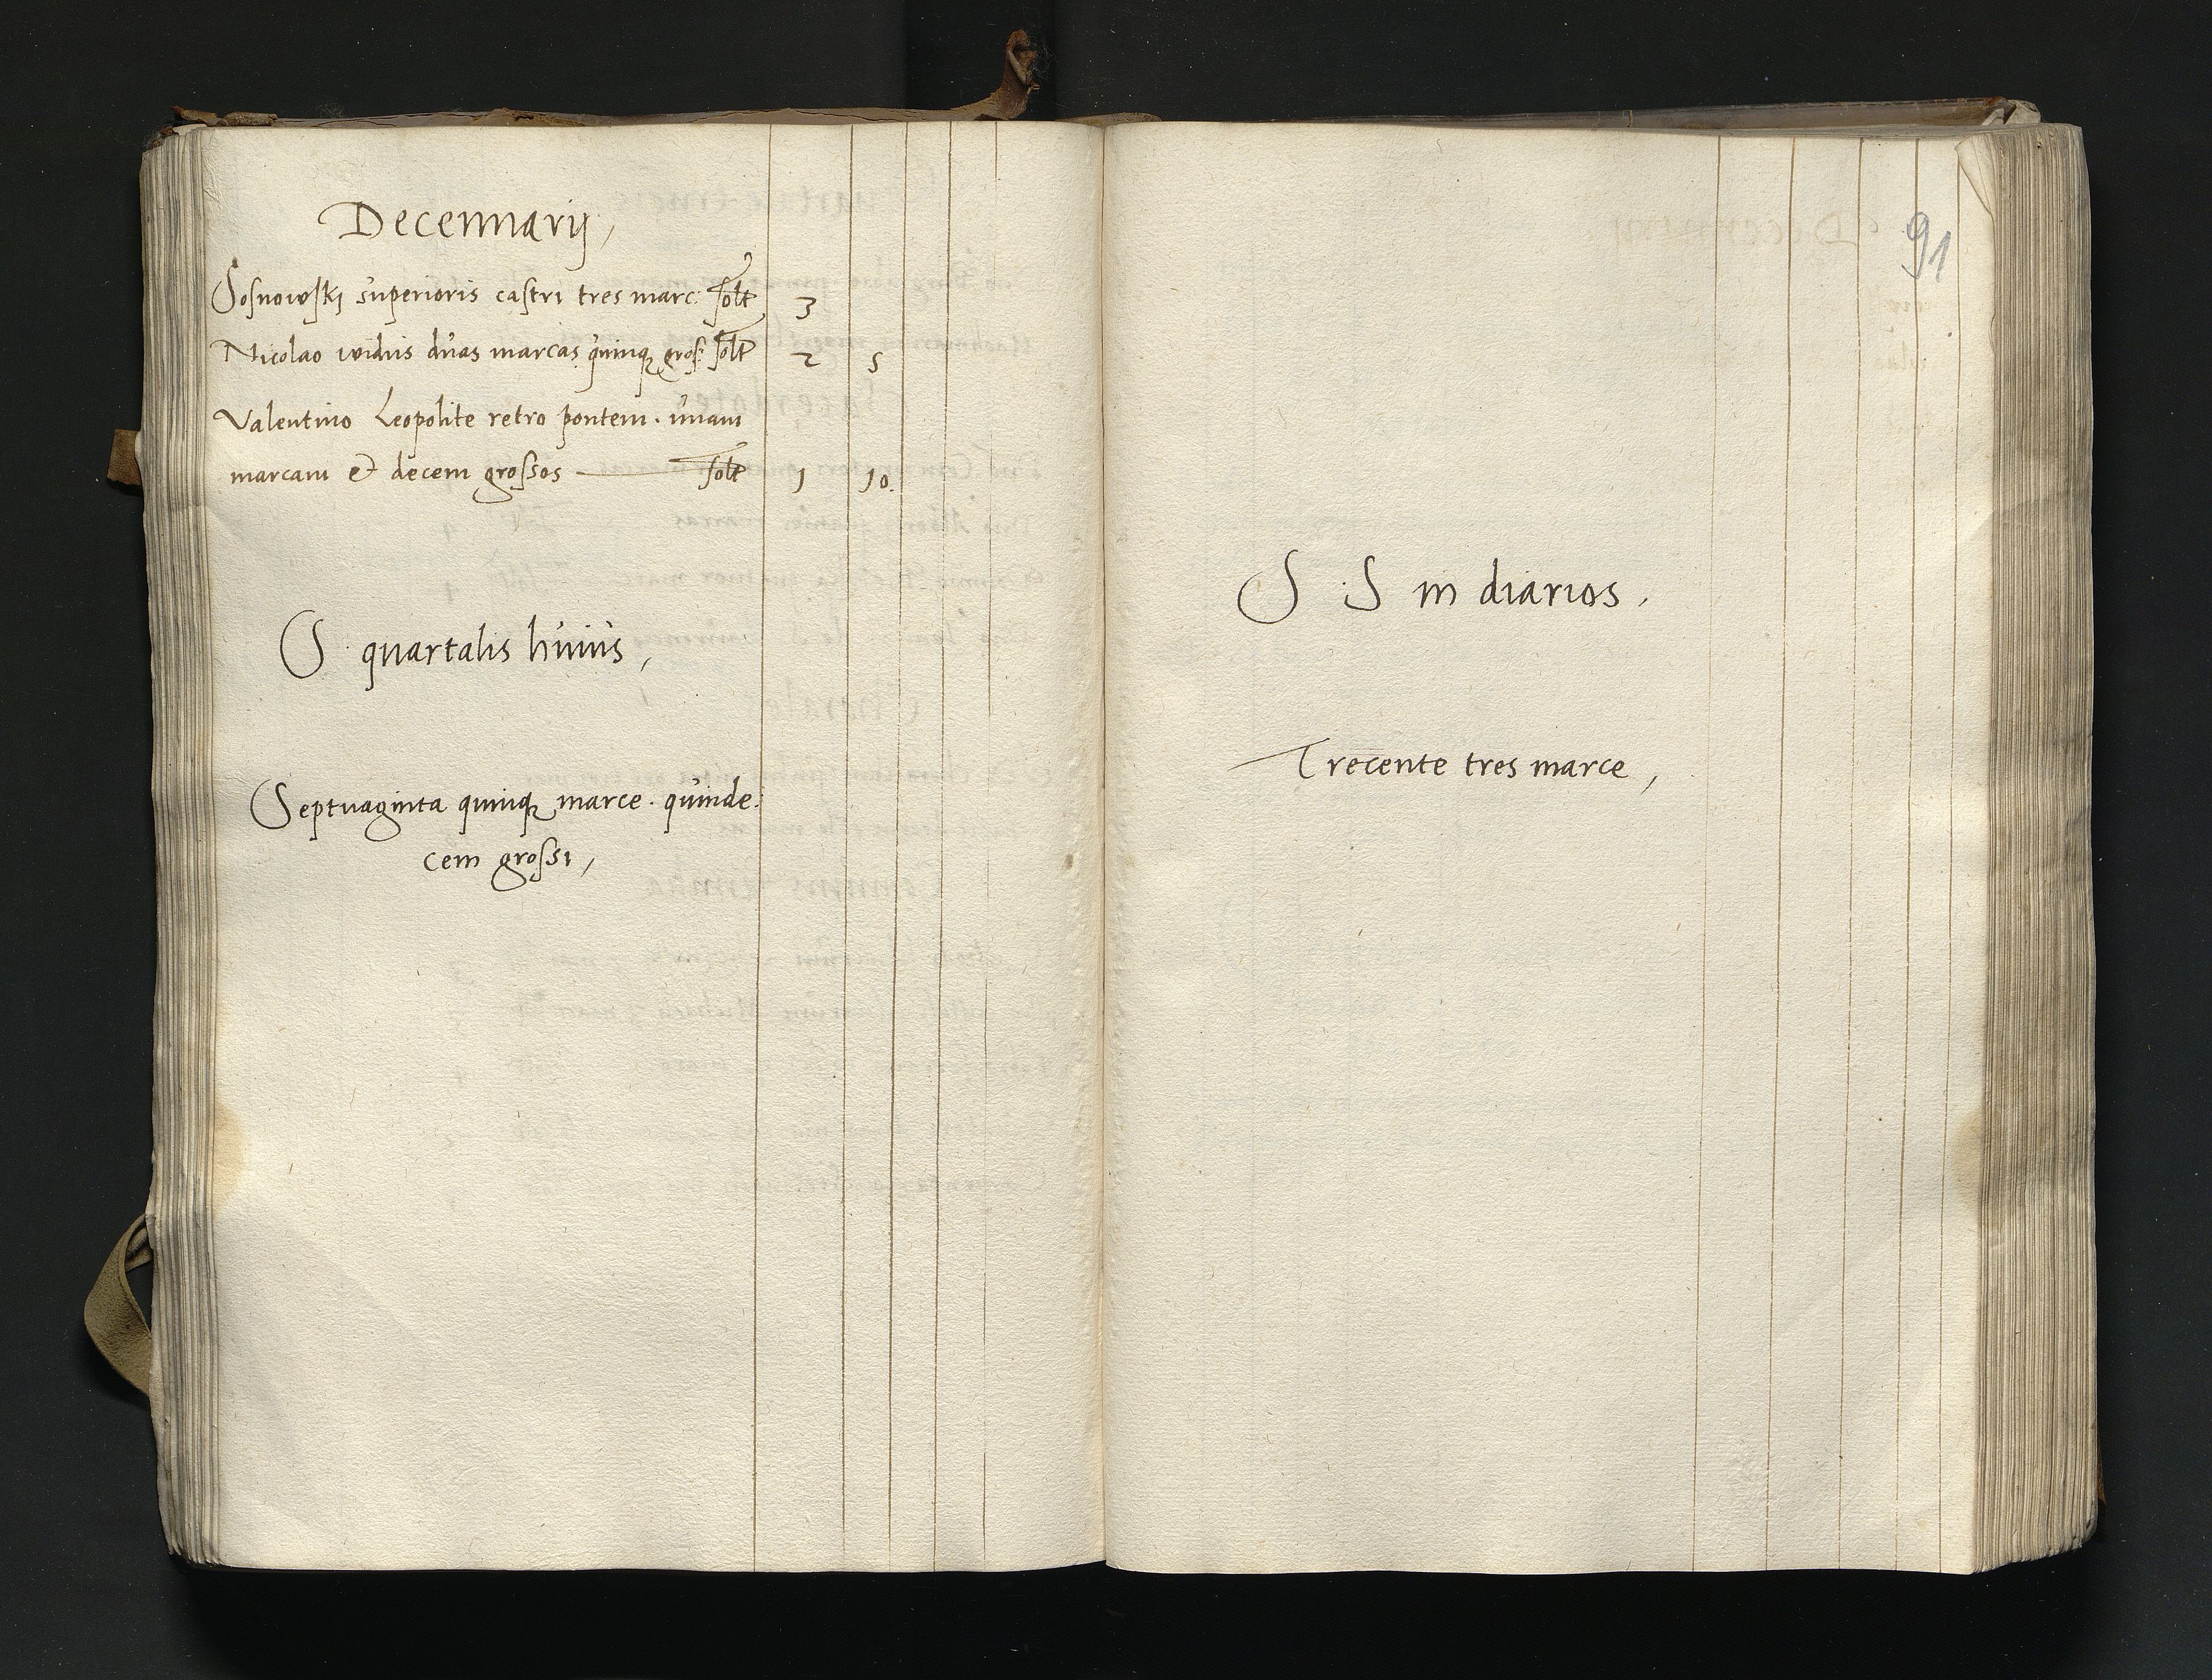 Decennarij,
Sosnowskj superioris castri tres marc: solt 3
Nicolao vidius duas marcas quinq gros: solt 2 5
Valentino Leopolite retro pontem. unam
marcam et decem grossos solt 1 10.
S quartalis huius,
Septuaginta quinq marce. quinde:
cem grossi,
91
S S in diarios,
Trecente tres marce,